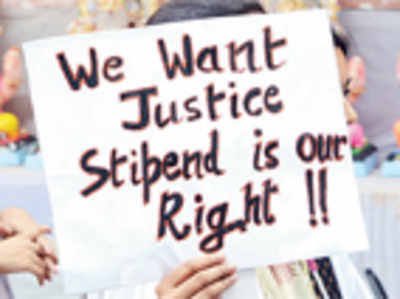 We Want
Justice
Stipend is our
Right !!